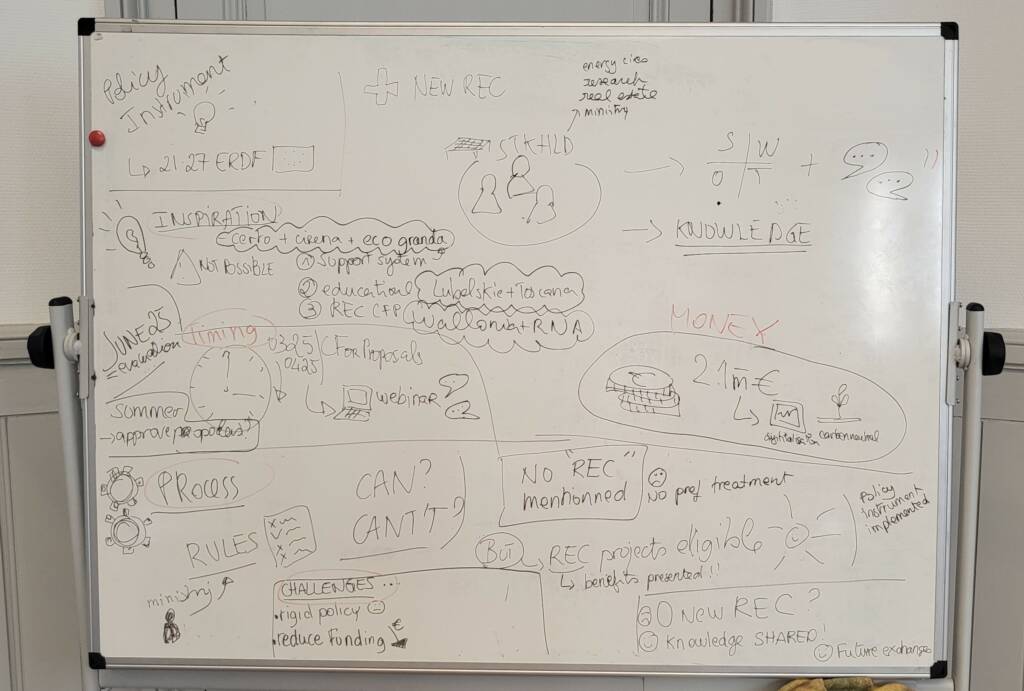 Policy
Instrument
21-27 ERDF
NEW REC
energy cies
research
real estate
ministry
STKHLD
S W
O T
+
KNOWLEDGE
INSPIRATION
certo + cirena + eco granda
NOT POSSIBLE
① support system
② educational Lubelskie + Toscana
③ REC CFP Wallonia + RNA
JUNE 25
= evaluation
Timing
03.25
04.25
C For Proposals
webinar
sommer
→ approve
MONEY
2.1 m €
digitalisation
carbon neutral
PROCESS
RULES
ministry
CAN?
CANT'T?
NO "REC"
mentionned
NO pref treatment
BUT REC projects eligible
benefits presented!!
Policy
instrument
implemented
CHALLENGES...
• rigid policy
• reduce Funding €
0 NEW REC?
Knowledge SHARED!
Future exchanges